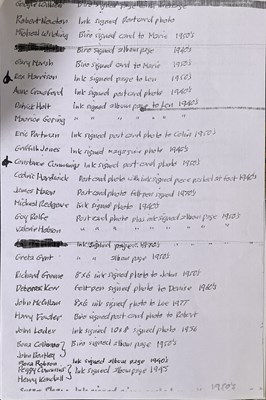 Robert Newton Ink signed Postcard photo
Michael Wilding Biro signed card to Marie 1940's
Biro signed album page 1940's
Gary Marsh Biro signed card to Marie 1940's
Rex Harrison Ink signed page to Len 1940's
Anne Crawford Ink signed post card photo 1940's
Patrick Holt Ink signed album page to Len 1940's
Maurice Goring " " " " " "
Eric Portman Ink signed post card photo to Celia 1950's
Griffith Jones Ink signed magazine photo 1940's
Constance Cummings Ink signed post card photo 1950's
Cedric Hardwick Post card photo with ink signed piece pasted at foot 1940's
James Mason Post card photo felt pen signed 1970's
Michael Redgrave Ink signed photo 1960's
Guy Rolfe Post card photo plus ink signed album page 1950's
Valerie Hobson " " " " " " " "
Ink signed page 1950's
Greta Gynt " " album page 1950's
Richard Greene 8x6 ink signed photo to John 1970's
Deborah Kerr felt pen signed photo to Denise 1960's
John McCallum 8x6 ink signed photo to Lee 1977
Harry Fowler Biro signed post card photo to Robert
John Loder Ink signed 10x8 signed photo 1986
Biro signed album page 1950's
John Bentley
Flora Robson Ink signed album page 1940's
Peggy Cummins Ink signed album page 1945
Henry Kendall
1960's